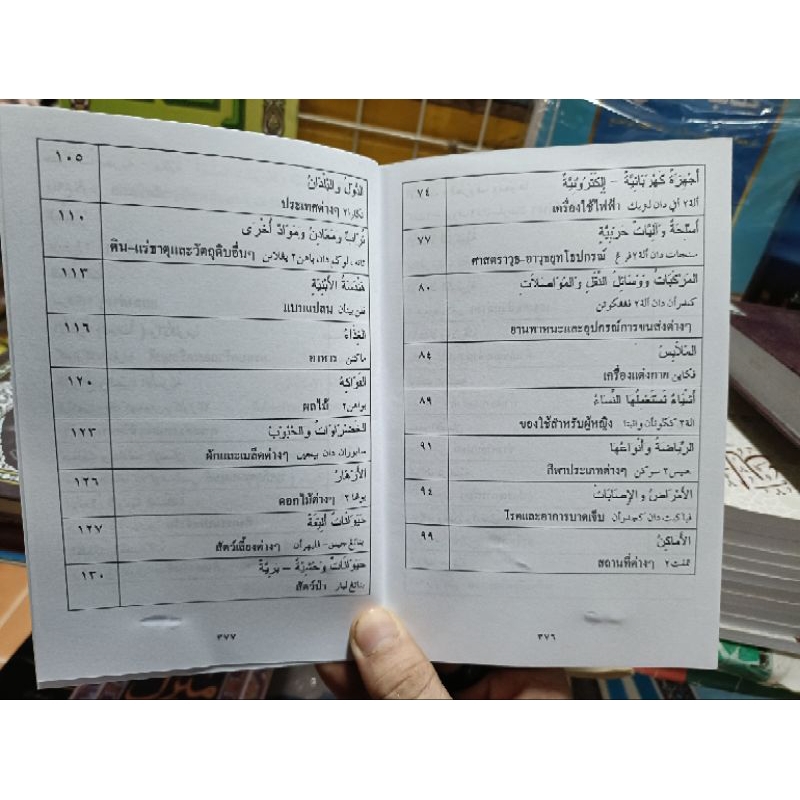 أَجْهِزَةٌ كَهْرَبَائِيَّةٌ – إِلِكْتُرُونِيَّةٌ ٧٤
เครื่องใช้ไฟฟ้า
أَسْلِحَةٌ وَآلِيَّاتٌ حَرْبِيَّةٌ ٧٧
ศาสตราวุธ-อาวุธยุทโธปกรณ์
المَرْكَبَاتُ وَوَسَائِلُ النَّقْلِ وَالْمُوَاصَلَاتِ ٨٠
ยานพาหนะและอุปกรณ์การขนส่งต่างๆ
المَلَابِسُ ٨٤
เครื่องแต่งกาย
أَشْيَاءُ تَسْتَعْمِلُهَا النِّسَاءُ ٨٩
ของใช้สำหรับผู้หญิง
الرِّيَاضَةُ وَأَنْوَاعُهَا ٩١
กีฬาประเภทต่างๆ
الأَمْرَاضُ وَالإِصَابَاتُ ٩٤
โรคและอาการบาดเจ็บ
الأَمَاكِنُ ٩٩
สถานที่ต่างๆ
٣٧٦
الدُّوَلُ وَالْبُلْدَانُ ١٠٥
ประเทศต่างๆ نڬارا٢
تُرَابٌ وَمَعَادِنُ وَمَوَادُّ أُخْرَى ١١٠
ดิน-แร่ธาตุและวัตถุดิบอื่นๆ
هَنْدَسَةُ الأَبْنِيَةِ ١١٣
แบบแปลน
الغِذَاءُ ١١٦
อาหาร ماكنن
الفَوَاكِهُ ١٢٠
ผลไม้ بواهن٢
الخَضْرَاوَاتُ وَالْحُبُوبُ ١٢٣
ผักและเมล็ดต่างๆ
الأَزْهَارُ ١٢٦
ดอกไม้ต่างๆ بوڠا٢
حَيَوَانَاتٌ أَلِيفَةٌ ١٢٧
สัตว์เลี้ยงต่างๆ
حَيَوَانَاتٌ وَحْشِيَّةٌ – بَرِّيَّةٌ ١٣٠
สัตว์ป่า بناتڠ ليار
٣٧٧